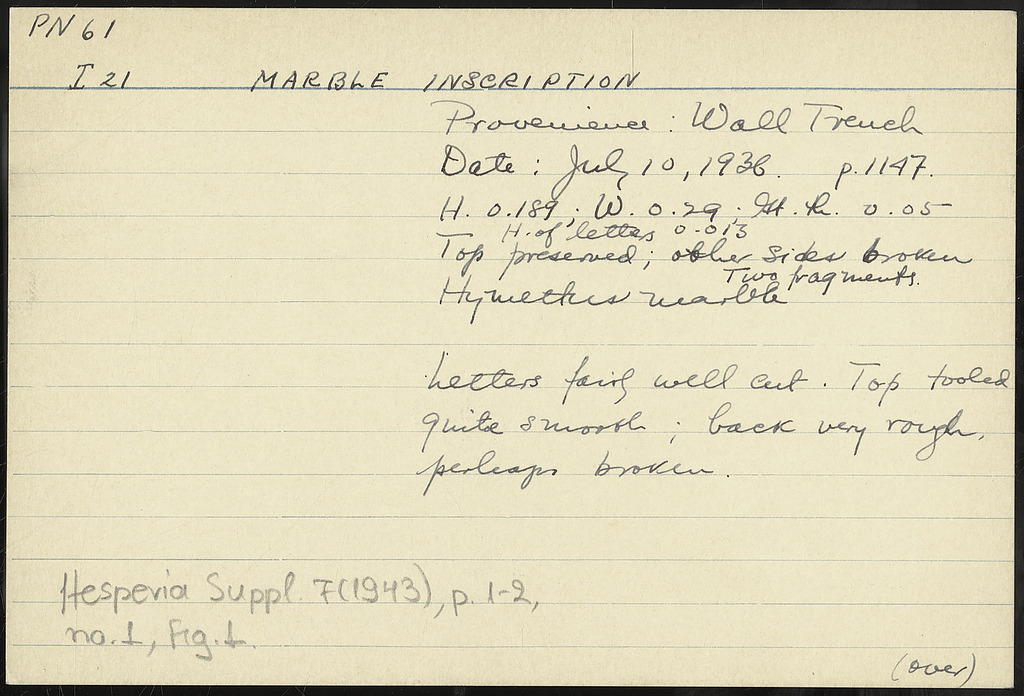 PN 61
I 21 MARBLE INSCRIPTION
Provenience: Wall Trench
Date: July 10, 1936. p. 1147.
H. 0.189; W. 0.29; th. 0.05
H. of letters 0.013
Top preserved; other sides broken
Two fragments.
Hymettus marble
Letters fairly well cut. Top tooled
quite smooth; back very rough,
perhaps broken.
Hesperia Suppl. 7(1943), p. 1-2,
no. 1, fig. 1.
(over)